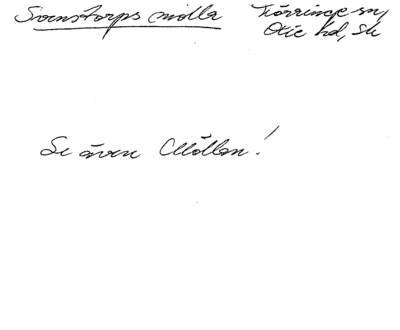 Svenstorps mölla
Törringe sn,
Oxie hd, Sk
Se även Möllan!